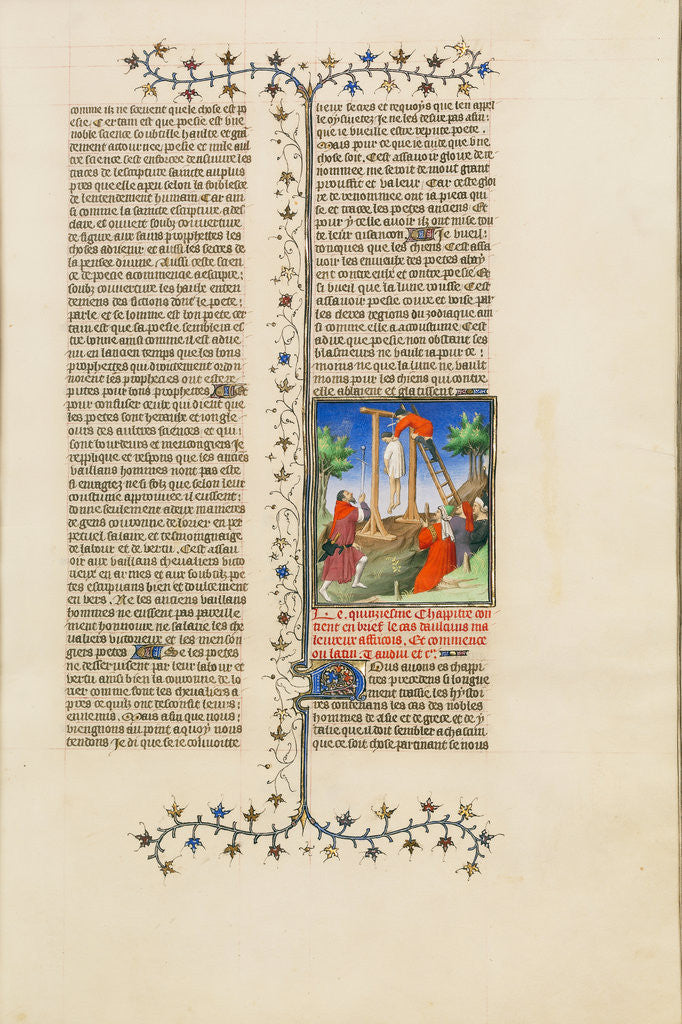 comme ilz ne scevent quele chose est po
esie. Certain est que poesie est une
noble science soubtille haulte et gra
dement atournee, poesie et mile aul
tre science sest enforcee densuivre les
traces de lescripture saincte au plus
pres que elle a peu selon la foiblesce
de lentendement humain Car ain
si comme la saincte escripture a des
claire et ouvert soubz couverture
de figure aux sains prophettes les
choses advenir et aussi les secres de
la pensee divine. Aussi ceste scien
ce de poesie a commence a escripre
soubz couverture les haulx enten
demens des fictions dont le poete
parle et se lomme est bon poete cer
tain est que sa poesie semblera es
tre bonne ainsi comme il est adve
nu en lancien temps que les bons
prophettes qui droictement ordon
noient les prophecies ont este re
putes pour bons prophettes Et
pour confuser ceulx qui dient que
les poetes sont heraulx et iongle
ours des aultres sciences et qui
sont bourdeurs et mencongiers Je
repplique et respons que les anciens
vaillans hommes nont pas este
si enragiez ne si folz que selon leur
coustume approuvee ilz eussent
donne seulement a deux manieres
de gens couronne de lorier en per
petuel salaire et tesmoignaige
de labour et de vertu. Cest assa
voir aux vaillans chevaliers victo
rieux en armes et aux soubtilz poe
tes escripvans bien et doulcement
en vers. Ne les anciens vaillans
hommes ne eussent pas pareille
ment honnoure ne salarie les che
valiers victorieux et les menson
giers poetes Se les poetes
ne desservissent par leur labour et
vertu aussi bien la couronne de lo
rier comme font les chevaliers a
pres ce quilz ont desconfit leurs
ennemis. Mais afin que nous
viengnons au point a quoy nous
tendons Je di que se ie couvoitte
lieur secres et requoys que len appel
le oysivetez Je ne les desire pas afin
que ie vueille estre repute poete.
Mais pour ce que ie cuide que une
chose soit. Cest assavoir gloire de re
nommee me seroit de moult grant
prouffit et valeur Car ceste gloi
re de renommee ont ia pieca qui
se et tracee les poetes anciens Et
pour y celle avoir ilz ont mise tou
te leur cusancon Je vueil
doncques que les chiens Cest assa
voir les envieux des poetes abay
ent contre eulx et contre poesie Et
si vueil que la lune rousse Cest
assavoir poesie coure et voise par
les cleres regions du zodiaque ain
si comme elle a acoustume Cest
adire que poesie non obstant ses
blasmeurs ne vauldra ia pour ce
moins ne que la lune ne vault
moins pour les chiens qui contre
elle abbaient et glatissent
Le. quinziesme Chappitre con
tient en brief le cas daulcuns ma
leureux affricois. Et commence
ou latin. T audivi et cetera.
Nous avons es chappi
tres precedens si longue
ment trassie les hystoi
res contenans les cas des nobles
hommes de Asie et de grece et de y
talie que il doit sembler a chascun
que ce soit chose partinant se nous